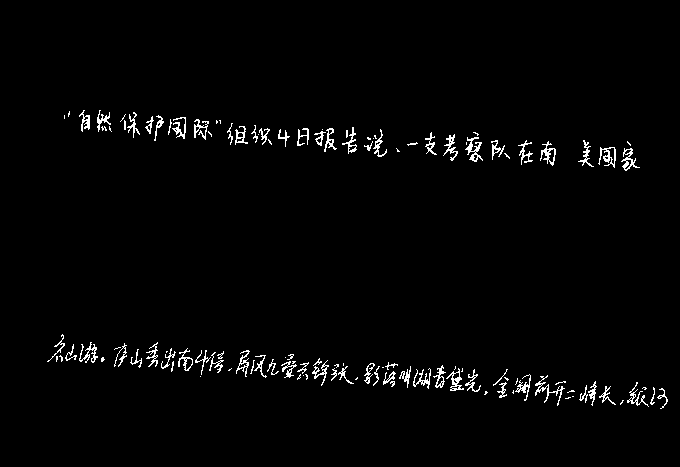 “自然保护国际”组织4日报告说、一支考察队在南 美国家
名山游。庐山秀出南斗傍,屏风九叠云锦张,影落明湖青黛光,金阙前开二峰长,银河